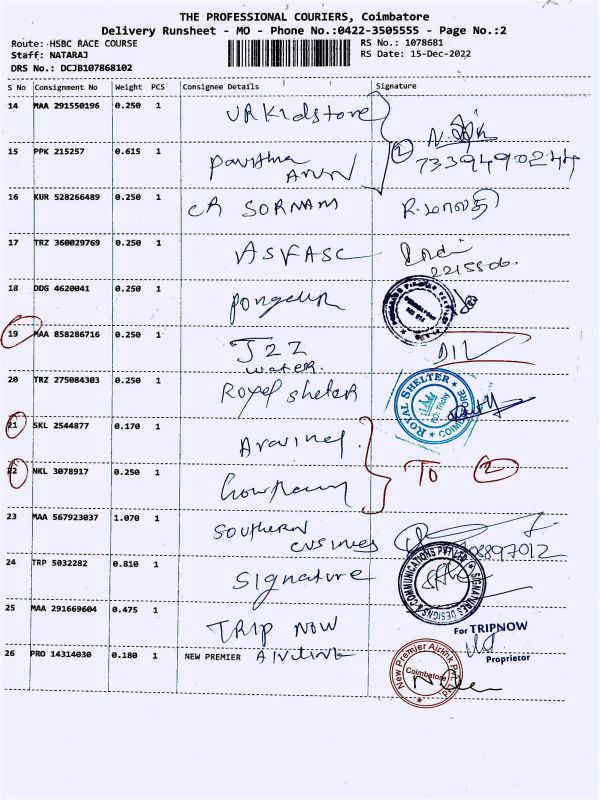 THE PROFESSIONAL COURIERS, Coimbatore
Delivery Runsheet - MO - Phone No.:0422-3505555 - Page No.:2
Route: HSBC RACE COURSE
Staff: NATARAJ
DRS No.: DCJB107868102
RS No.: 1078681
RS Date: 15-Dec-2022
S No Consignment No Weight PCS Consignee Details Signature
14 MAA 291550196 0.250 1 UR Kidstore
15 PPK 215257 0.615 1 Pavithra Arun 2 7339490244
16 KUR 528266489 0.250 1 CA SORNAM R. மாலதி
17 TRZ 360029769 0.250 1 ASFASC 2215806
18 DDG 4620041 0.250 1
19 MAA 858286716 0.250 1 J2Z water
20 TRZ 275084303 0.250 1 Royal shelter ROYAL SHELTER COIMBATORE
21 SKL 2544877 0.170 1 Aravind
22 NKL 3078917 0.250 1 To 2
23 MAA 567923037 1.070 1 Southern
24 TRP 5032282 0.810 1 Signature SIGNATURES DESIGNS & COMMUNICATIONS PVT LTD
25 MAA 291669604 0.475 1 TRIP NOW For TRIPNOW
Proprietor
26 PRO 14314030 0.180 1 NEW PREMIER Airlink New Premier Airlink Pvt. Ltd. Coimbatore